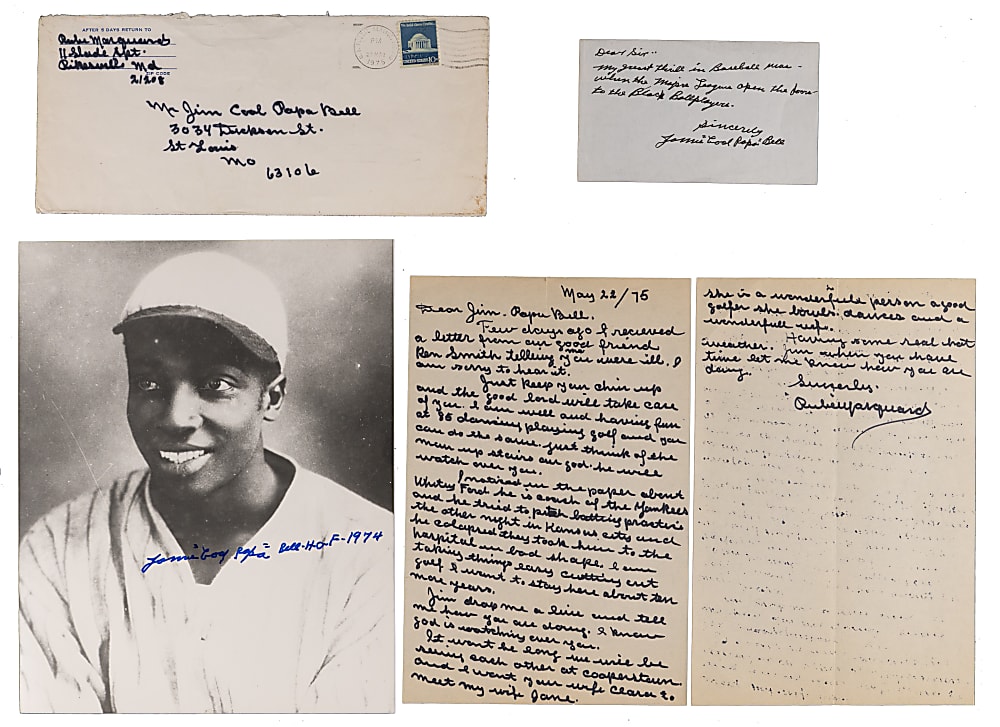 AFTER 5 DAYS RETURN TO
Rube Marquard
11 Slade Apt.
Pikesville Md
ZIP CODE
21208
PM
1975
10c
Mr Jim Cool Papa Bell
3034 Dickson St.
St Louis
Mo
63106
Dear Sir--
My great thrill in Baseball was-
when the Major League open the door-
to the Black Ballplayers.
Sincerly
James "Cool Papa" Bell
James "Cool Papa" Bell-H-O-F-1974
May 22/75
Dear Jim. Papa Bell.
Few days ago I recieved
a letter from our good friend
Ken Smith telling me you were ill. I
am sorry to hear it.
Just keep your chin up
and the good lord will take care
of you. I am well and having fun
at 85 dancing playing golf and you
can do the same. just think of the
man up stairs our god. he will
watch over you.
I noticed in the paper about
Whitey Ford he is coach of the Yankees
and he tried to pitch batting practice
the other night in Kansas city and
he colapsed they took him to the
hospital in bad shape. I am
taking things easy cutting out
golf I want to stay here about ten
more years.
Jim drop me a line and tell
me how you are doing. I know
god is watching over you.
It wont be long we will be
seeing each other at cooperstown
and I want your wife Clara to
meet my wife Jane.
she is a wonderfule person a good
golfer she bowls. dances and a
wonderfull wife.
Having some real hot
weather. Jim when you have
time let me know how you are
doing.
Sincerely.
"Rube" Marquard